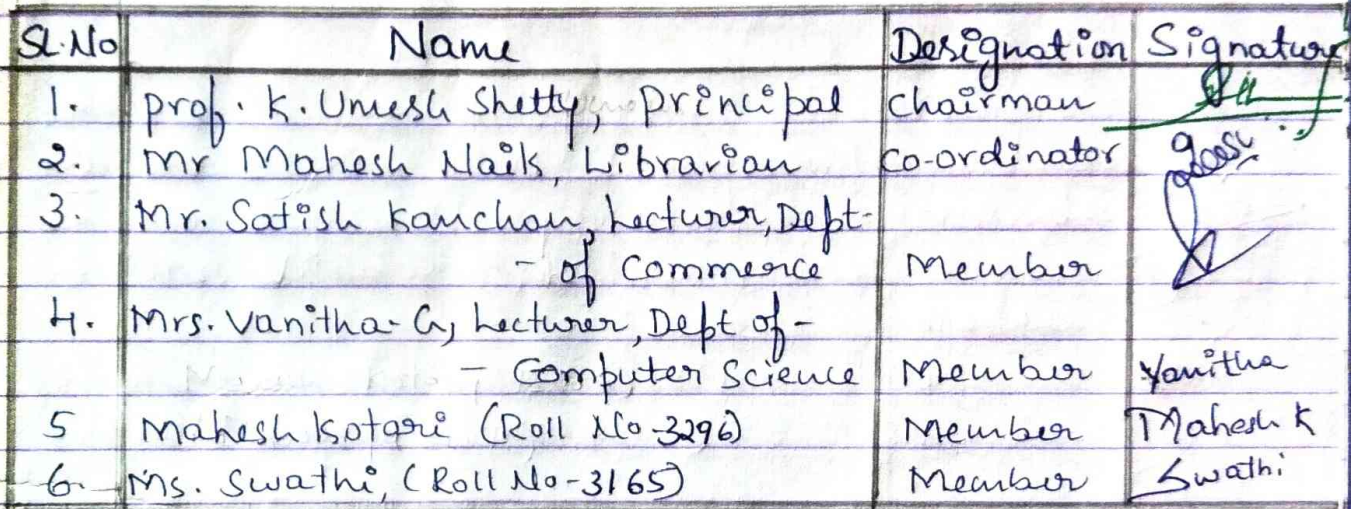 Sl.No Name Designation Signature
1. prof. K. Umesh Shetty, Principal Chairman
2. Mr Mahesh Naik, Librarian Co-ordinator
3. Mr. Satish Kanchan, Lecturer, Dept-
- of Commerce Member
4. Mrs. Vanitha. G, Lecturer, Dept of -
- Computer Science Member Vanitha
5 Mahesh Kotari (Roll No-3296) Member Mahesh K
6. Ms. Swathi, (Roll No-3165) Member Swathi